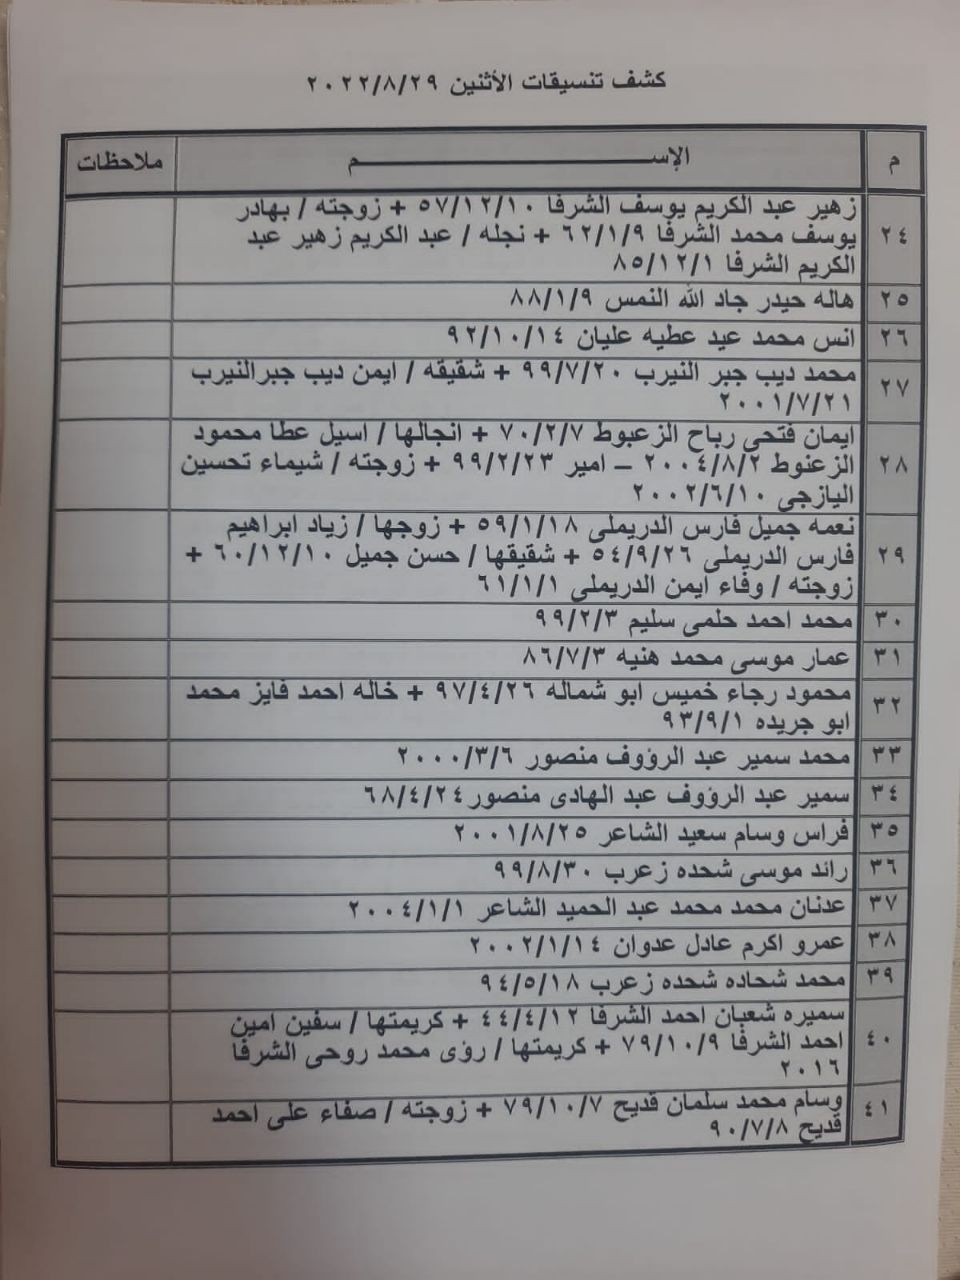 كشف تنسيقات الأثنين ٢٠٢٢/٨/٢٩
م الإســـــــــــــــــــم ملاحظات
٢٤ زهير عبد الكريم يوسف الشرفا ٥٧/١٢/١٠ + زوجته / بهادر
يوسف محمد الشرفا ٦٢/١/٩ + نجله / عبد الكريم زهير عبد
الكريم الشرفا ٨٥/١٢/١
٢٥ هاله حيدر جاد الله النمس ٨٨/١/٩
٢٦ انس محمد عيد عطيه عليان ٩٢/١٠/١٤
٢٧ محمد ديب جبر النيرب ٩٩/٧/٢٠ + شقيقه / ايمن ديب جبرالنيرب
٢٠٠١/٧/٢١
٢٨ ايمان فتحى رباح الزعبوط ٧٠/٢/٧ + انجالها / اسيل عطا محمود
الزعنوط ٢٠٠٤/٨/٢ – امير ٩٩/٢/٢٣ + زوجته / شيماء تحسين
اليازجى ٢٠٠٢/٦/١٠
٢٩ نعمه جميل فارس الدريملى ٥٩/١/١٨ + زوجها / زياد ابراهيم
فارس الدريملى ٥٤/٩/٢٦ + شقيقها / حسن جميل ٦٠/١٢/١٠ +
زوجته / وفاء ايمن الدريملى ٦١/١/١
٣٠ محمد احمد حلمى سليم ٩٩/٢/٣
٣١ عمار موسى محمد هنيه ٨٦/٧/٣
٣٢ محمود رجاء خميس ابو شماله ٩٧/٤/٢٦ + خاله احمد فايز محمد
ابو جريده ٩٣/٩/١
٣٣ محمد سمير عبد الرؤوف منصور ٢٠٠٠/٣/٦
٣٤ سمير عبد الرؤوف عبد الهادى منصور٦٨/٤/٢٤
٣٥ فراس وسام سعيد الشاعر ٢٠٠١/٨/٢٥
٣٦ رائد موسى شحده زعرب ٩٩/٨/٣٠
٣٧ عدنان محمد محمد عبد الحميد الشاعر ٢٠٠٤/١/١
٣٨ عمرو اكرم عادل عدوان ٢٠٠٢/١/١٤
٣٩ محمد شحاده شحده زعرب ٩٤/٥/١٨
٤٠ سميره شعبان احمد الشرفا ٤٤/٤/١٢ + كريمتها / سفين امين
احمد الشرفا ٧٩/١٠/٩ + كريمتها / رؤى محمد روحى الشرفا
٢٠١٦
٤١ وسام محمد سلمان قديح ٧٩/١٠/٧ + زوجته / صفاء على احمد
قديح ٩٠/٧/٨